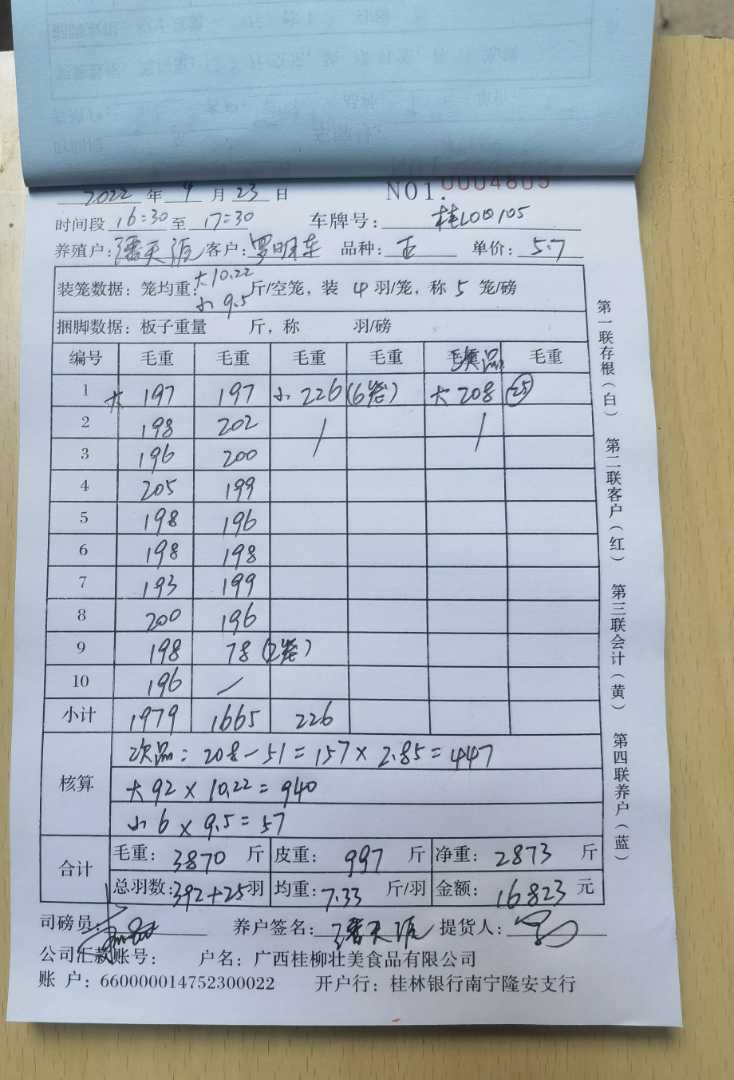 2022 年 9 月 23 日 NO1. 0004805
时间段 16:30 至 17:30 车牌号: 桂L00105
养殖户: 潘天源 客户: 罗明东 品种: 正 单价: 5.7
装笼数据: 笼均重: 大10.22 小9.5 斤/空笼, 装 4 羽/笼, 称 5 笼/磅
捆脚数据: 板子重量 斤, 称 羽/磅
编号 毛重 毛重 毛重 毛重 次品 毛重
1 大 197 197 小 226 (6笼) 大 208 25
2 198 202 / /
3 196 200
4 205 199
5 198 196
6 198 198
7 193 199
8 200 196
9 198 78 (2笼)
10 196 /
小计 1979 1665 226
核算
次品: 208-51=157×2.85=447
大92×10.22=940
小6×9.5=57
合计
毛重: 3870 斤 皮重: 997 斤 净重: 2873 斤
总羽数: 392+25 羽 均重: 7.33 斤/羽 金额: 16823 元
司磅员: 养户签名: 潘天源 提货人:
公司汇款账号: 户名: 广西桂柳壮美食品有限公司
账 户: 660000014752300022 开户行: 桂林银行南宁隆安支行
第一联存根(白) 第二联客户(红) 第三联会计(黄) 第四联养户(蓝)